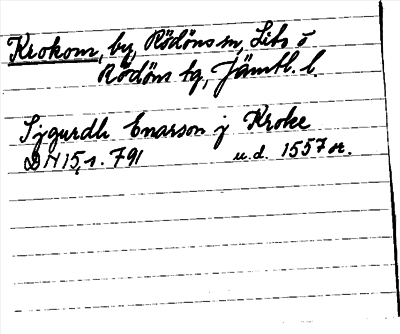 Krokom, by, Rödöns sn,
Rödöns tg, Jämtl. l.
Sjgurdh Enarson j Kroke
DN 15, s. 791 u.d. 1557 or.